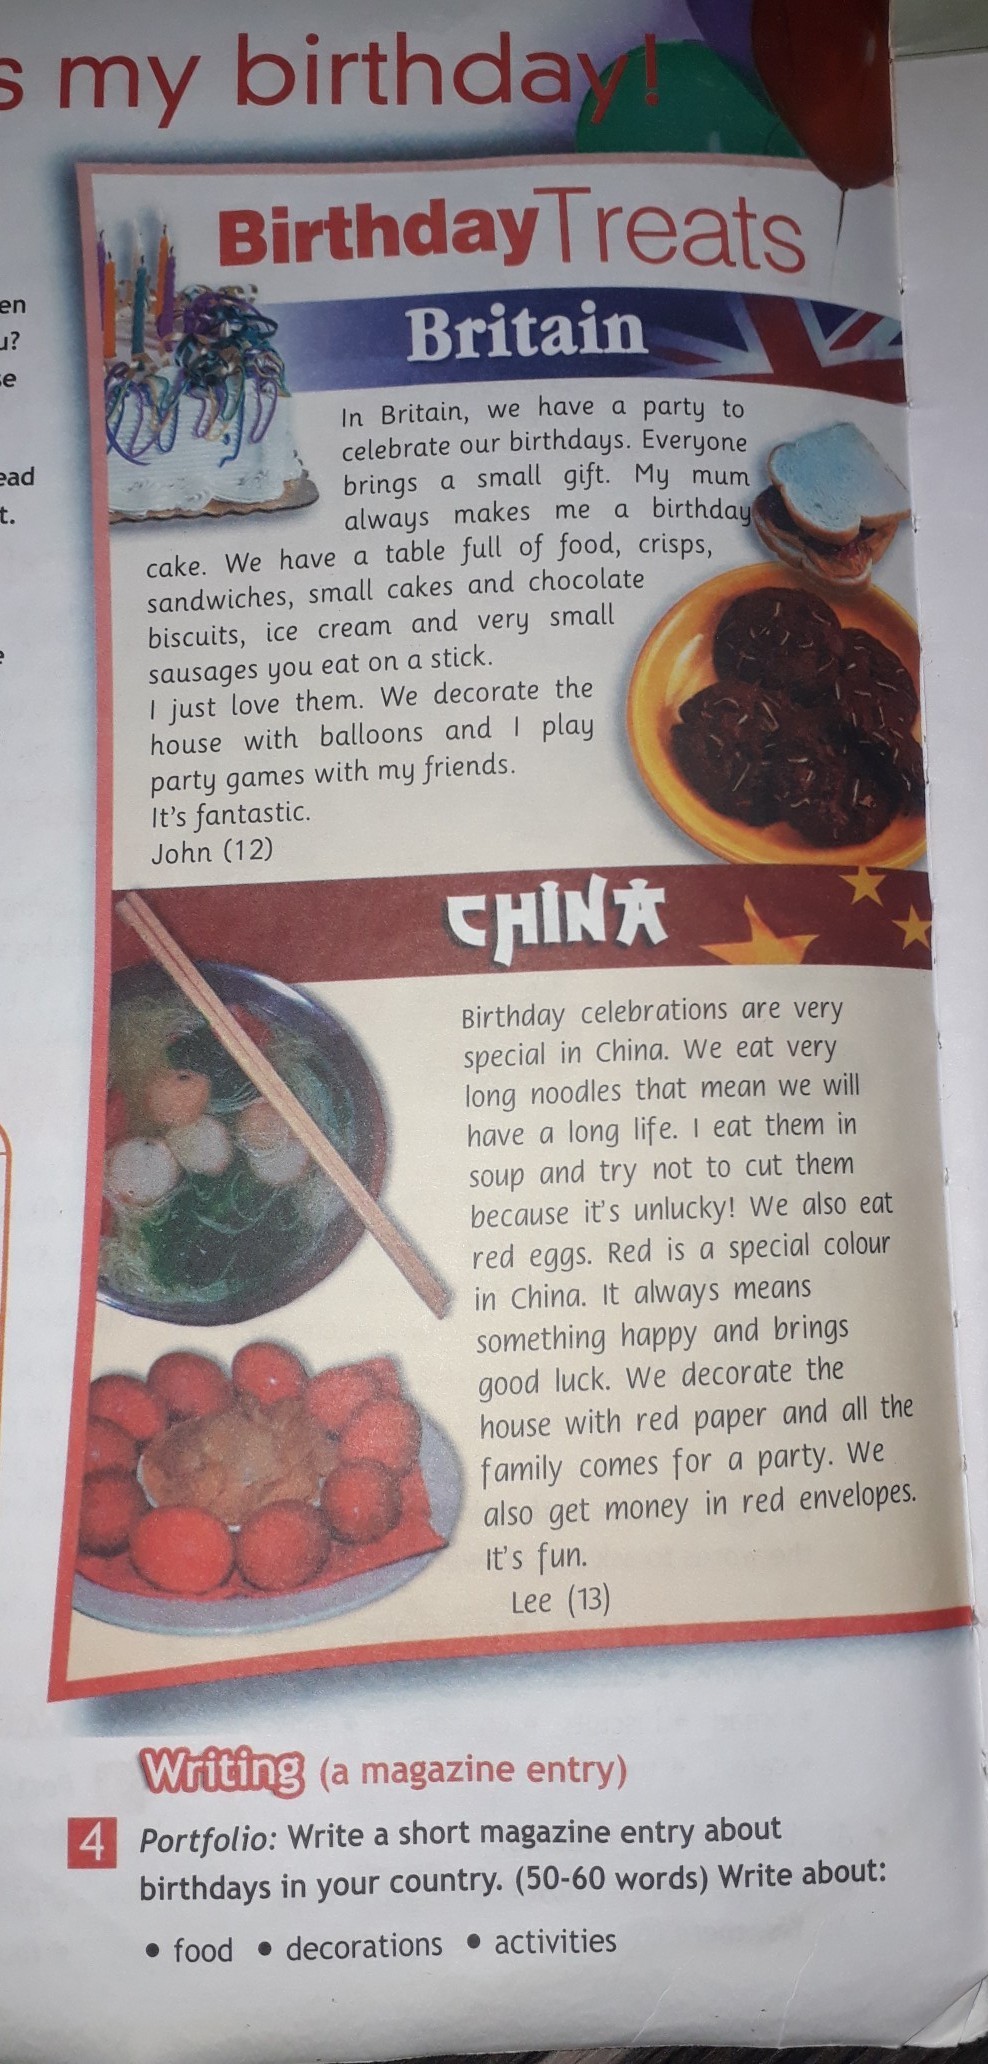 s my birthday!
en
u?
se
ead
t.
e
BirthdayTreats
Britain
In Britain, we have a party to
celebrate our birthdays. Everyone
brings a small gift. My mum
always makes me a birthday
cake. We have a table full of food, crisps,
sandwiches, small cakes and chocolate
biscuits, ice cream and very small
sausages you eat on a stick.
I just love them. We decorate the
house with balloons and I play
party games with my friends.
It's fantastic.
John (12)
CHINA
Birthday celebrations are very
special in China. We eat very
long noodles that mean we will
have a long life. I eat them in
soup and try not to cut them
because it's unlucky! We also eat
red eggs. Red is a special colour
in China. It always means
something happy and brings
good luck. We decorate the
house with red paper and all the
family comes for a party. We
also get money in red envelopes.
It's fun.
Lee (13)
Writing (a magazine entry)
4 Portfolio: Write a short magazine entry about
birthdays in your country. (50-60 words) Write about:
• food • decorations • activities